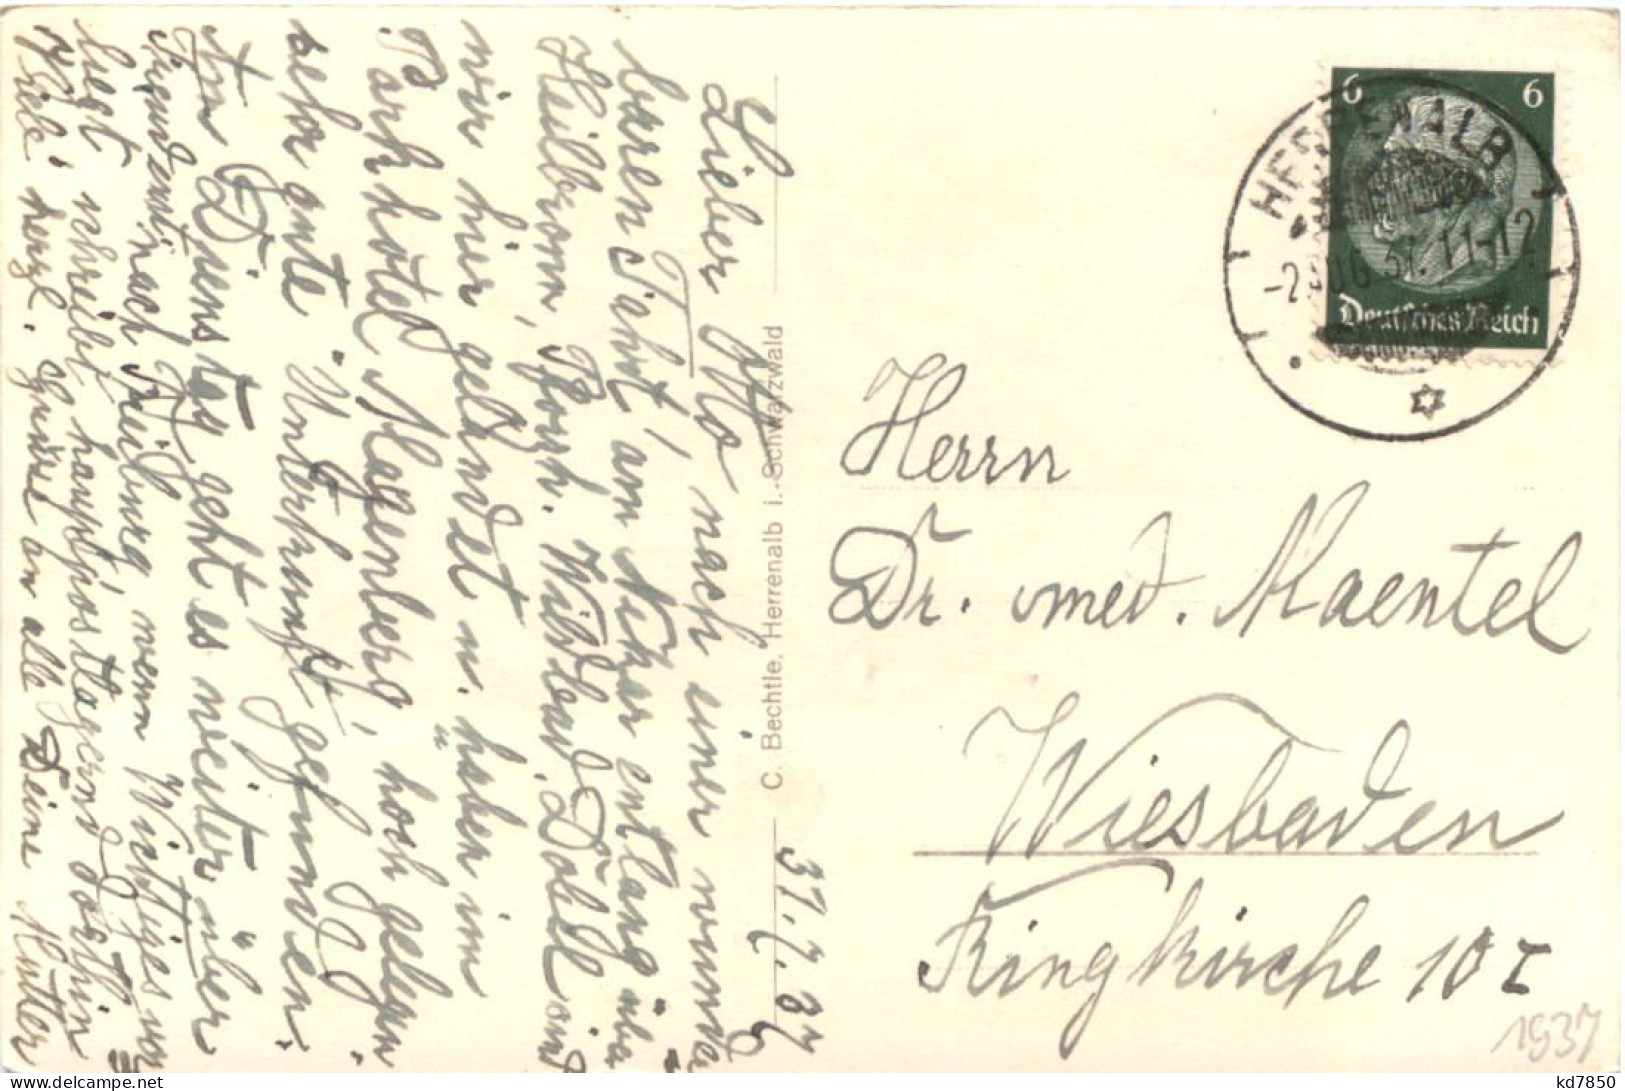 31.7.37
Lieber Otto, nach einer wunder
baren Fahrt am Neckar entlang über
Heilbronn, Pforzh. Wildbad, Dobel sind
wir hier gelandet u. haben im
Parkhotel Magenberg, hoch gelegen
sehr gute Unterkunft gefunden.
Am Dienstag geht es weiter über
Freudenst. nach Freiburg, wenn Wichtiges vor
liegt schreibt hauptpostlagernd dorthin
herzl. Grüsse an alle Deine Mutter
C. Bechtle, Herrenalb i. Schwarzwald
6 6
Deutsches Reich
HERRENALB
-2.AUG.37.11-12
Herrn
Dr. med. Maentel
Wiesbaden
Ringkirche 10 I
1937
kd7850